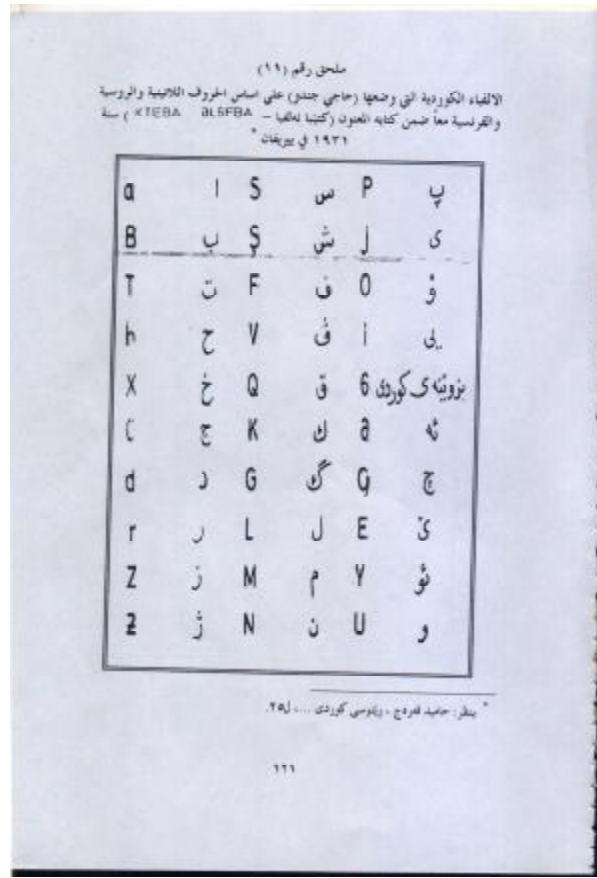 ملحق رقم (١٩)
الالفباء الكوردية التي وضعها (حاجي جندو) على اساس الحروف اللاتينية والروسية
والفرنسية معاً ضمن كتابه المعنون (كتيبا ئەلفبا – KTEBA ƏLSFBA ) سنة
١٩٣١ في ييريفان *
a ا S س P پ
B ب Ş ش J ى
T ت F ف O ۆ
h ح V ڤ i یی
X خ Q ق 6 بزوێنەی كوردی
C ج K ك Ə ئە
d د G گ Ç چ
r ر L ل E ێ
Z ز M م Y ئۆ
Ƶ ژ N ن U و
* ينظر: حاميد فەرەج ، رێنوسی كوردی ...، ل٢٥.
١٢١